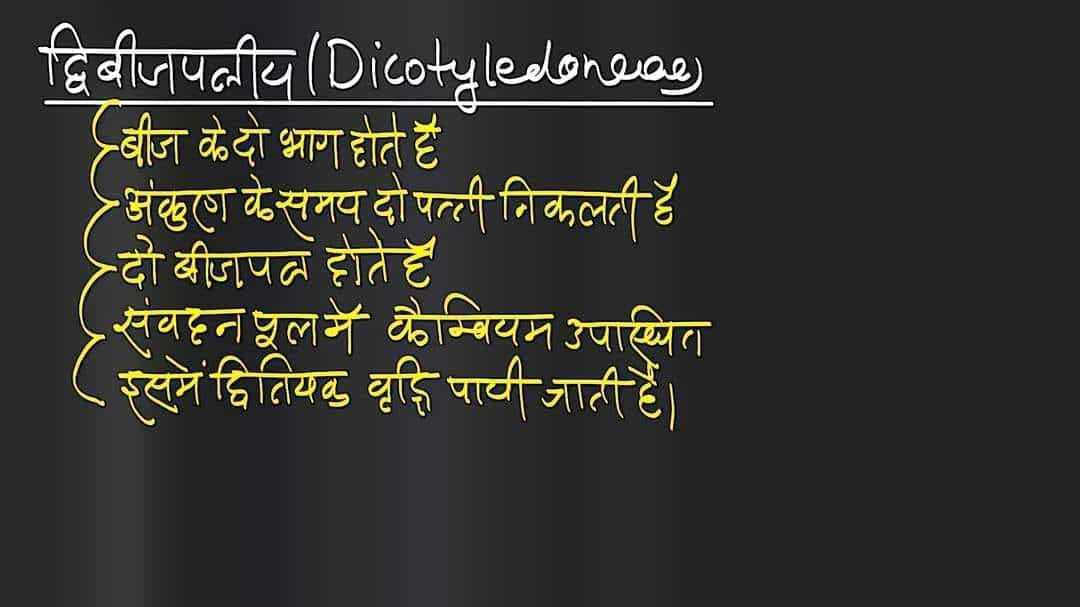 द्विबीजपत्रीय (Dicotyledoneae)
बीज के दो भाग होते हैं
अंकुरण के समय दो पत्ती निकलती है
दो बीजपत्र होते हैं
संवहन पूल में कैम्बियम उपास्थित
इसमें द्वितियक वृद्धि पायी जाती है।